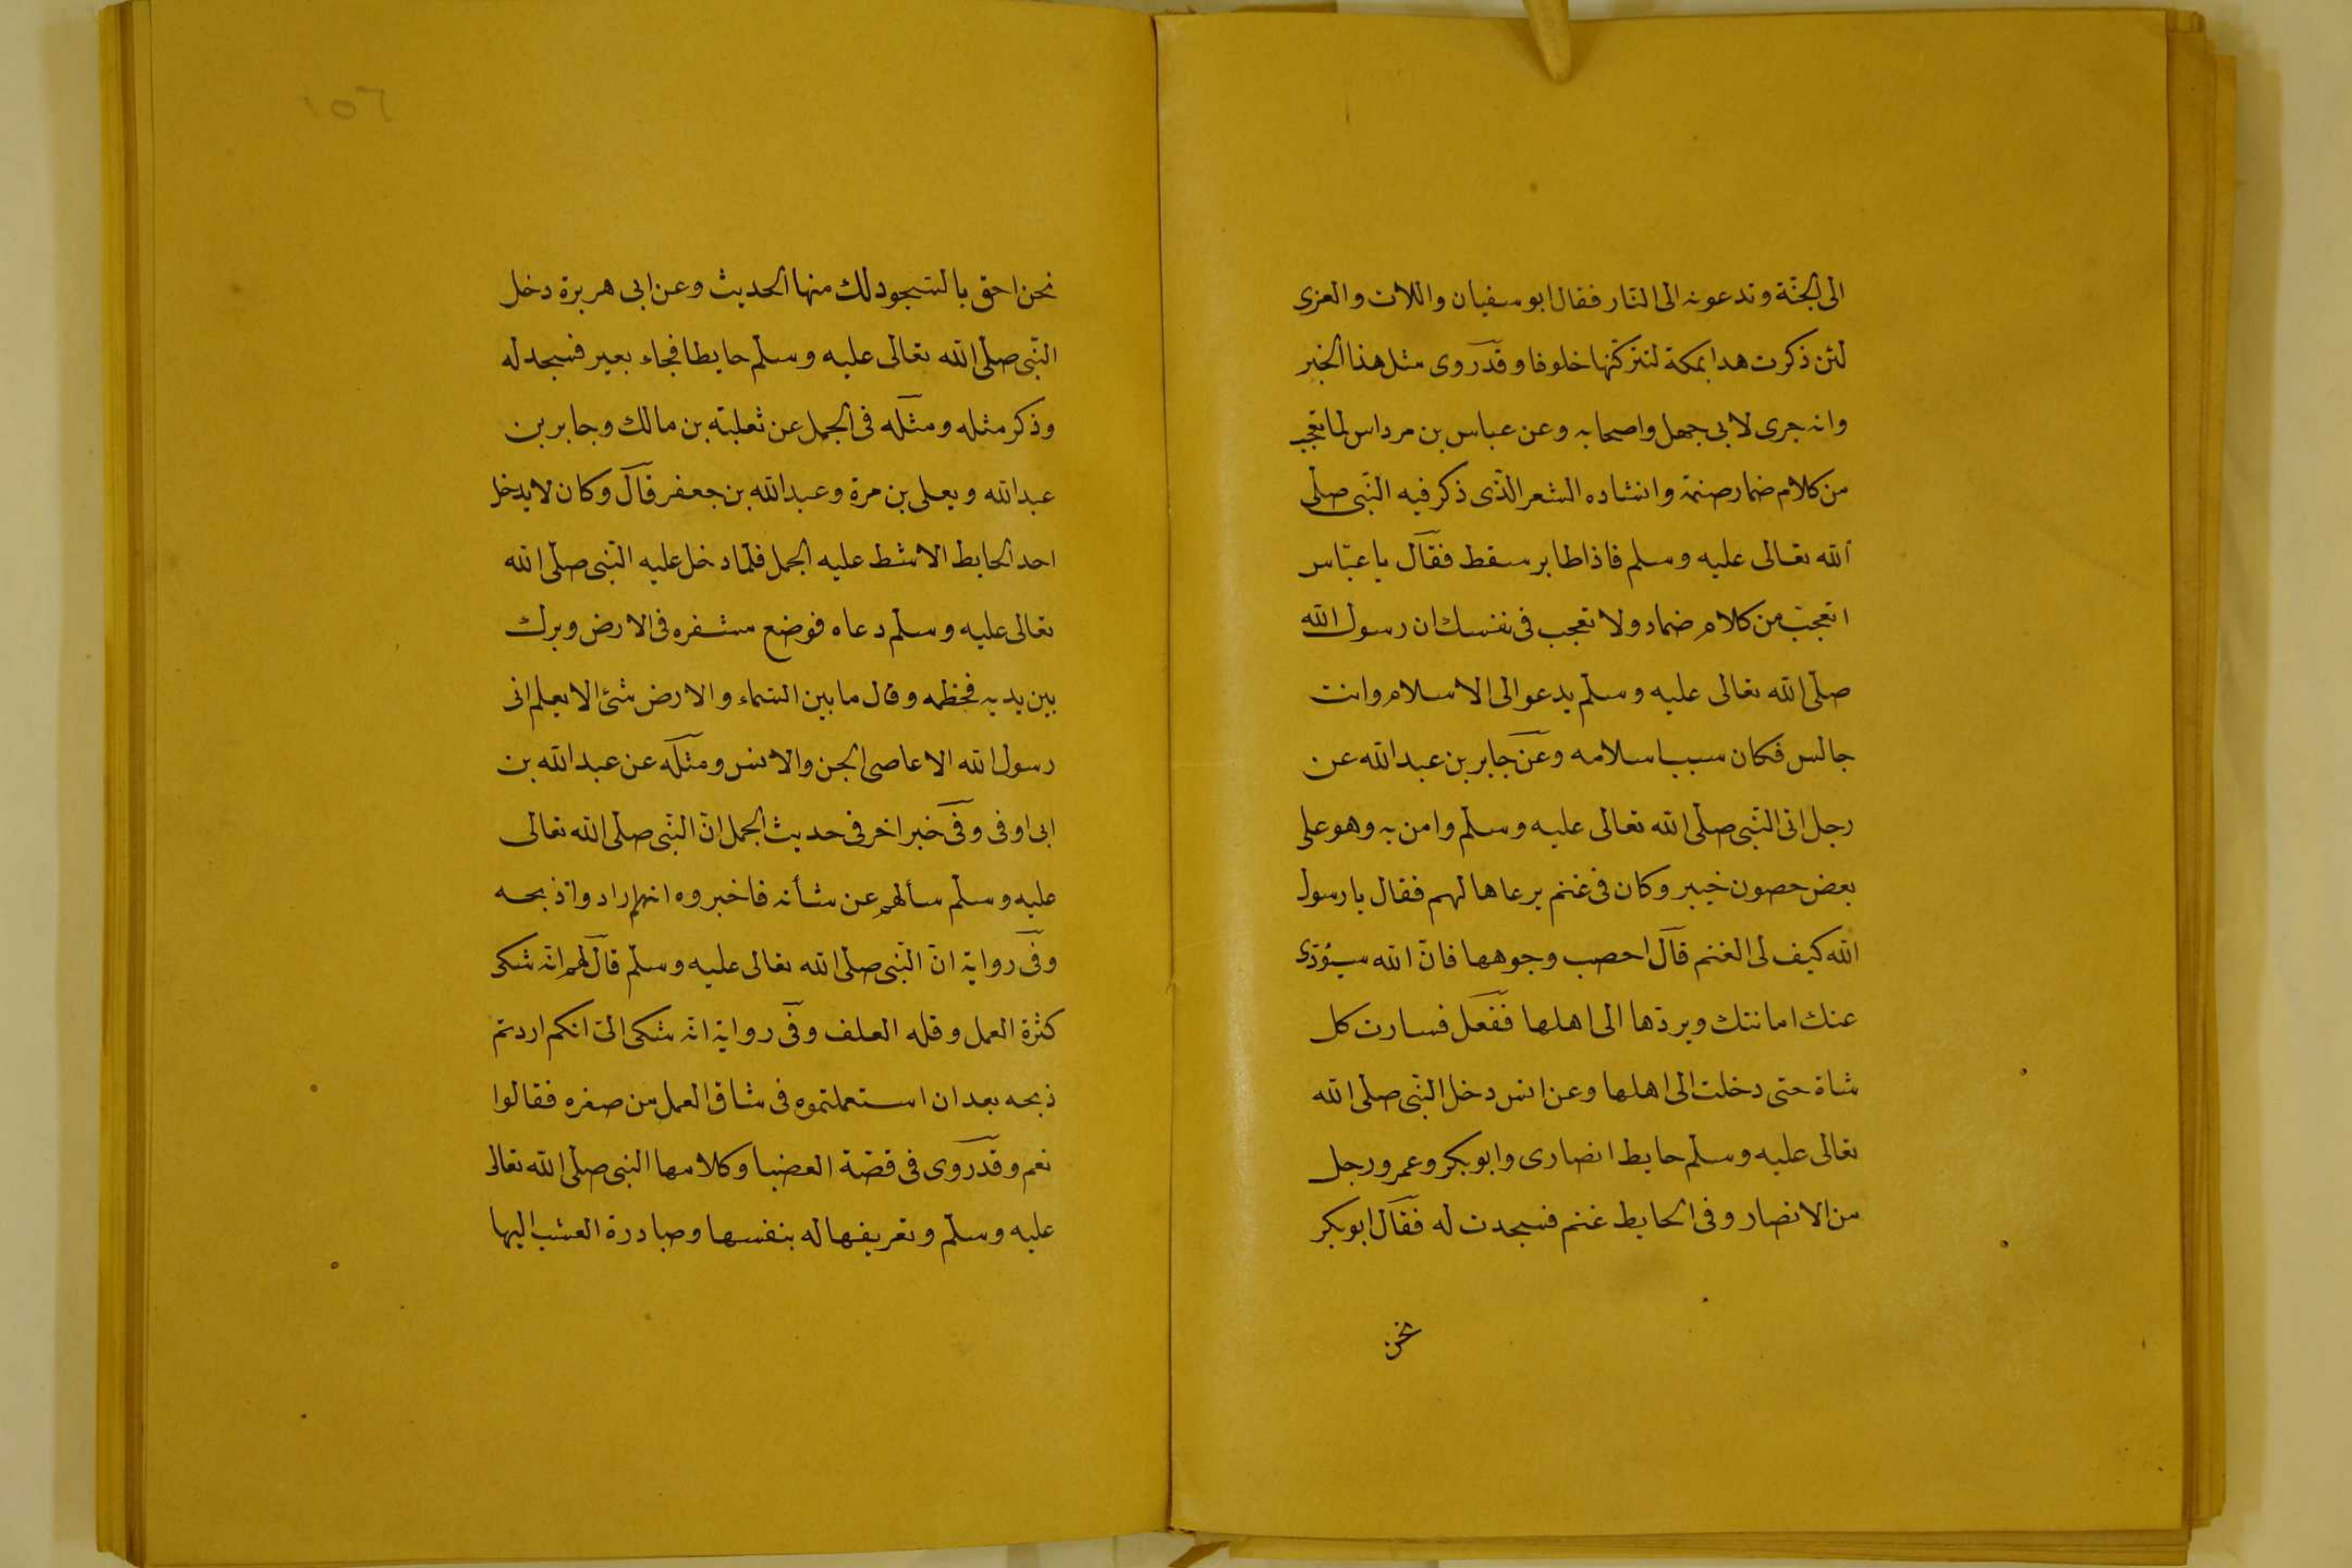 الى الجنّة وتدعونه الى النّار فقال ابو سفيان واللات والعزى
لئن ذكرت هدا بمكة لنتركنّها خلوفا وقد روى مثل هذا الخبر
وانه جرى لابى جهل واصحابه وعن عباس بن مرداس لما تعجب
من كلام ضمار صنمه وانشاده الشعر الذّى ذكر فيه النّبى صلّى
الله تعالى عليه وسلم فاذا طاير سقط فقال يا عبّاس
اتعجب من كلام ضماد ولا تعجب فى نفسك ان رسول الله
صلّى الله تعالى عليه وسلّم يدعو الى الاسلام وانت
جالس فكان سبب اسلامه وعن جابر بن عبد الله عن
رجل اتى النّبى صلّى الله تعالى عليه وسلّم وامن به وهو على
بعض حصون خيبر وكان فى غنم يرعاها لهم فقال يا رسول
الله كيف لى الغنم قال احصب وجوهها فانّ الله سيؤدّى
عنك امانتك ويردّها الى اهلها ففعل فسارت كل
شاة حتى دخلت الى اهلها وعن انس دخل النّبى صلّى الله
تعالى عليه وسلّم حايط انصارى وابو بكر وعمر ورجل
من الانصار وفى الحايط غنم فسجدت له فقال ابو بكر
نحن
١٥٦
نحن احق بالسّجود لك منها الحديث وعن ابى هريرة دخل
النّبى صلّى الله تعالى عليه وسلّم حايطا فجاء بعير فسجد له
وذكر مثله ومثله فى الجمل عن ثعلبة بن مالك وجابر بن
عبد الله ويعلى بن مرة وعبد الله بن جعفر قال وكان لا يدخل
احد الحايط الا شط عليه الجمل فلمّا دخل عليه النّبى صلّى الله
تعالى عليه وسلّم دعاه فوضع مشفره فى الارض وبرك
بين يديه فخطمه وقال ما بين السّماء والارض شئ الا يعلم انى
رسول الله الا عاصى الجن والانس ومثله عن عبد الله بن
ابى اوفى وفى خبر اخر فى حديث الجمل انّ النّبى صلّى الله تعالى
عليه وسلّم سألهم عن شأنه فاخبروه انهم ارادوا ذبحه
وفى رواية انّ النّبى صلّى الله تعالى عليه وسلّم قال لهم انّه شكى
كثرة العمل وقله العلف وفى رواية انّه شكى الىّ انكم اردتم
ذبحه بعد ان استعملتموه فى شاق العمل من صغره فقالوا
نعم وقد روى فى قصّة العضبا وكلامها النبى صلّى الله تعالى
عليه وسلّم وتعريفها له بنفسها ومبادرة العشب اليها